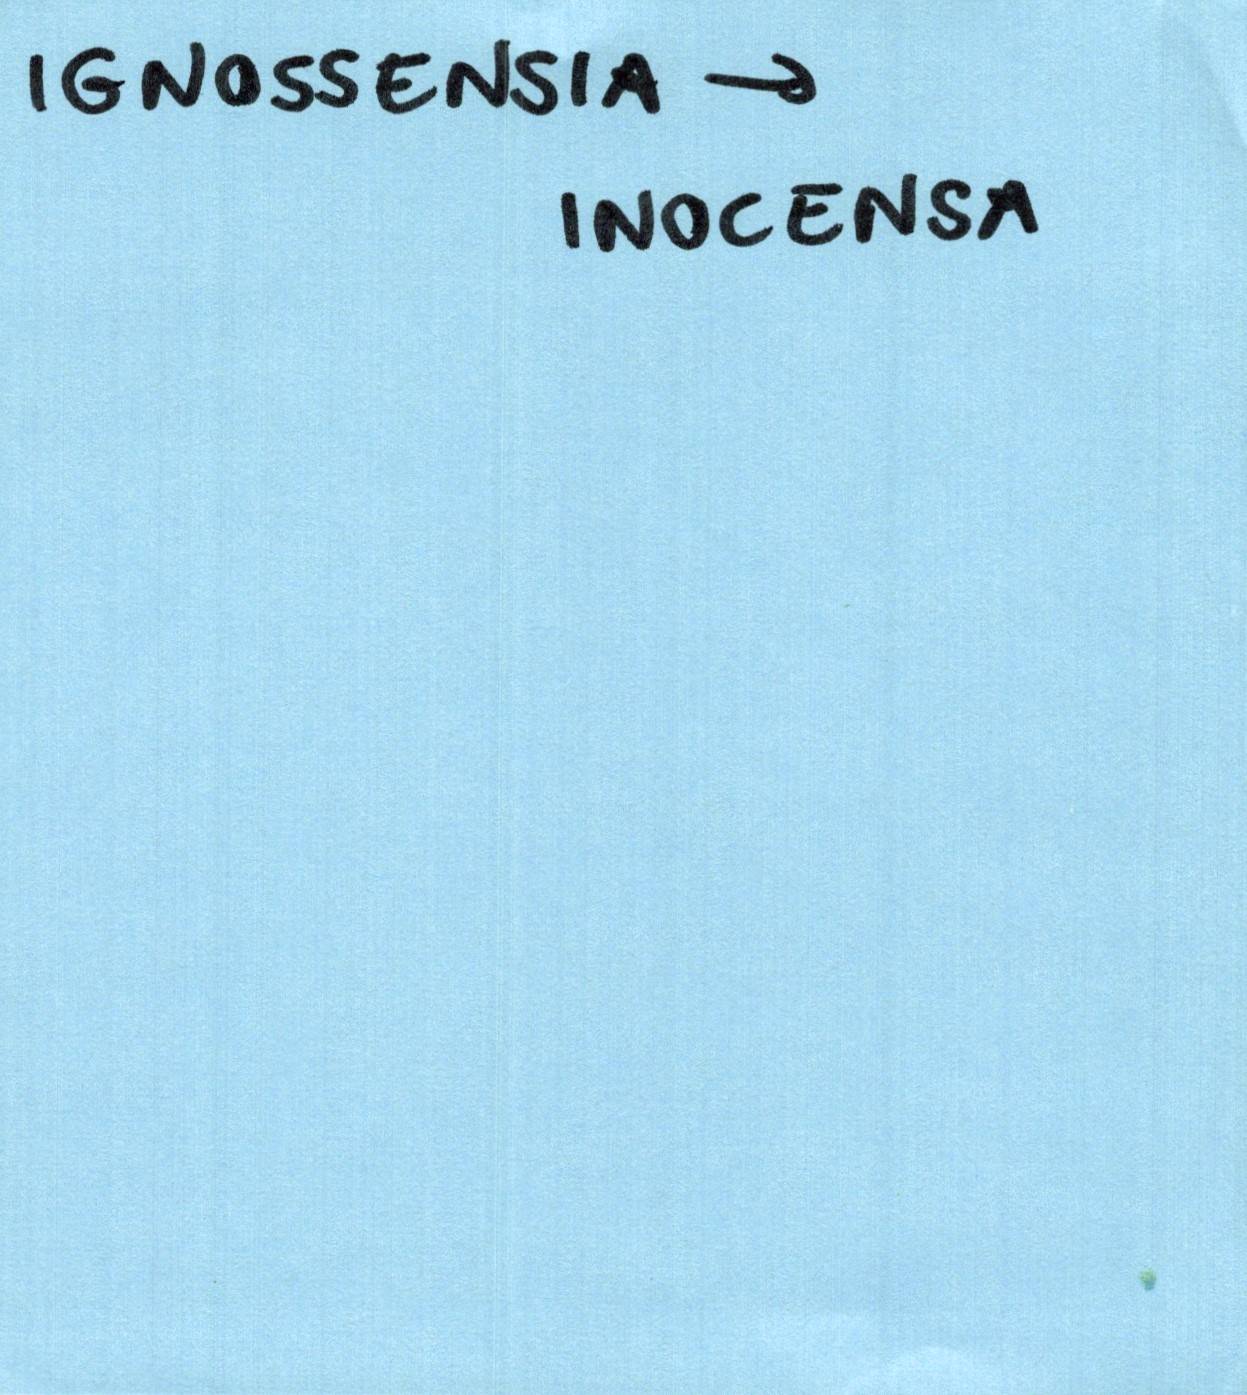 IGNOSSENSIA →
INOCENSA